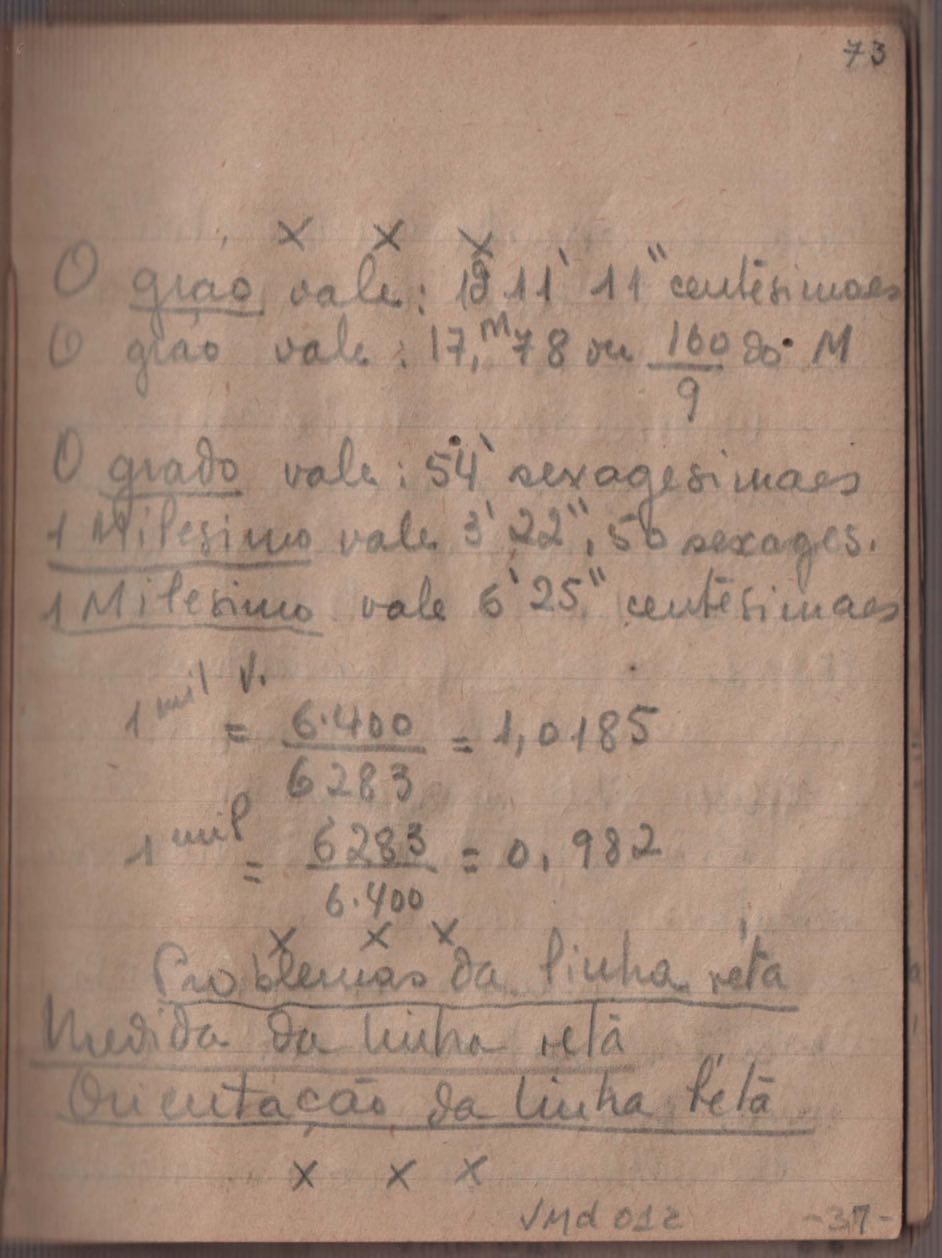 73
x x x
O grao vale: 1g 11' 11" centésimaes
O grao vale: 17,M78 ou 160/9 do M
O grado vale: 54' sexagesimaes
1 Milesimo vale 3' 22", 50 sexages.
1 Milesimo vale 6' 25" centésimaes
1 mil V. = 6.400/6283 = 1,0185
1 mil = 6283/6.400 = 0,982
x x x
Problemas da linha réta
Medida da linha retā
Orientação da linha rétā
x x x
VMd 012 -37-